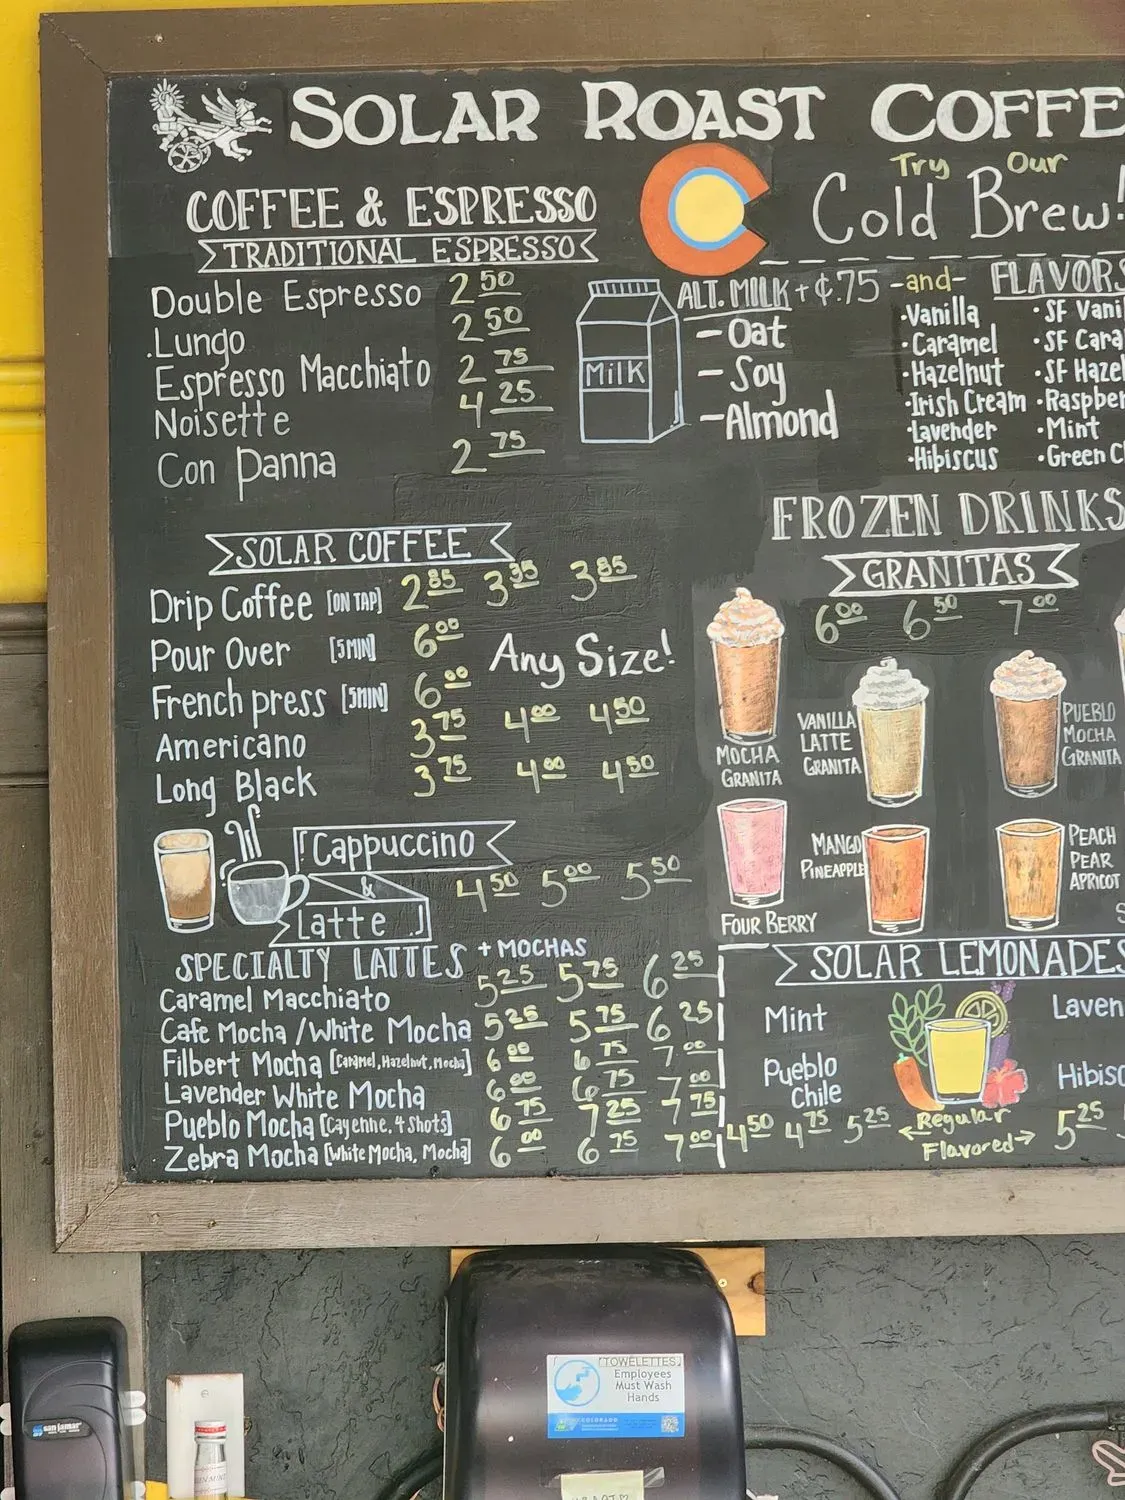 SOLAR ROAST COFFE
Try Our
Cold Brew!
COFFEE & ESPRESSO
TRADITIONAL ESPRESSO
Double Espresso 2 50
Lungo 2 50
Espresso Macchiato 2 75
Noisette 4 25
Con Panna 2 75
Milk
ALT. MILK + ¢.75 -and- FLAVORS
- Oat
- Soy
- Almond
·Vanilla
·Caramel
·Hazelnut
·Irish Cream
·Lavender
·Hibiscus
·SF Vani
·SF Cara
·SF Hazel
·Raspber
·Mint
·Green C
SOLAR COFFEE
Drip Coffee [ON TAP] 2 85 3 35 3 85
Pour Over [5MIN] 6 00
Any Size!
French press [5MIN] 6 00
Americano 3 75 4 00 4 50
Long Black 3 75 4 00 4 50
Cappuccino
&
Latte
4 50 5 00 5 50
SPECIALTY LATTES + MOCHAS
Caramel Macchiato 5 25 5 75 6 25
Cafe Mocha / White Mocha 5 25 5 75 6 25
Filbert Mocha [Caramel, Hazelnut, Mocha] 6 00 6 75 7 00
Lavender White Mocha 6 00 6 75 7 00
Pueblo Mocha [Cayenne, 4 Shots] 6 75 7 25 7 75
Zebra Mocha [White Mocha, Mocha] 6 00 6 75 7 00
FROZEN DRINKS
GRANITAS
6 00 6 50 7 00
MOCHA
GRANITA
VANILLA
LATTE
GRANITA
PUEBLO
MOCHA
GRANITA
FOUR BERRY
MANGO
PINEAPPLE
PEACH
PEAR
APRICOT
SOLAR LEMONADES
Mint
Laven
Pueblo
Chile
Hibisc
4 50 4 75 5 25
Regular
Flavored
5 25
TOWELETTES
Employees
Must Wash
Hands
COLORADO
san jamar